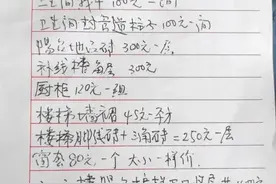 卫生间找平100元一间
卫生间封管道粘不100元一间
阳台地沟砖 300元一层
补线槽每层 300元
厨柜120元一组
楼梯墙裙45元一平方
楼梯脚线砖+三角砖=250元一层
窗套80元一个 大小一样价